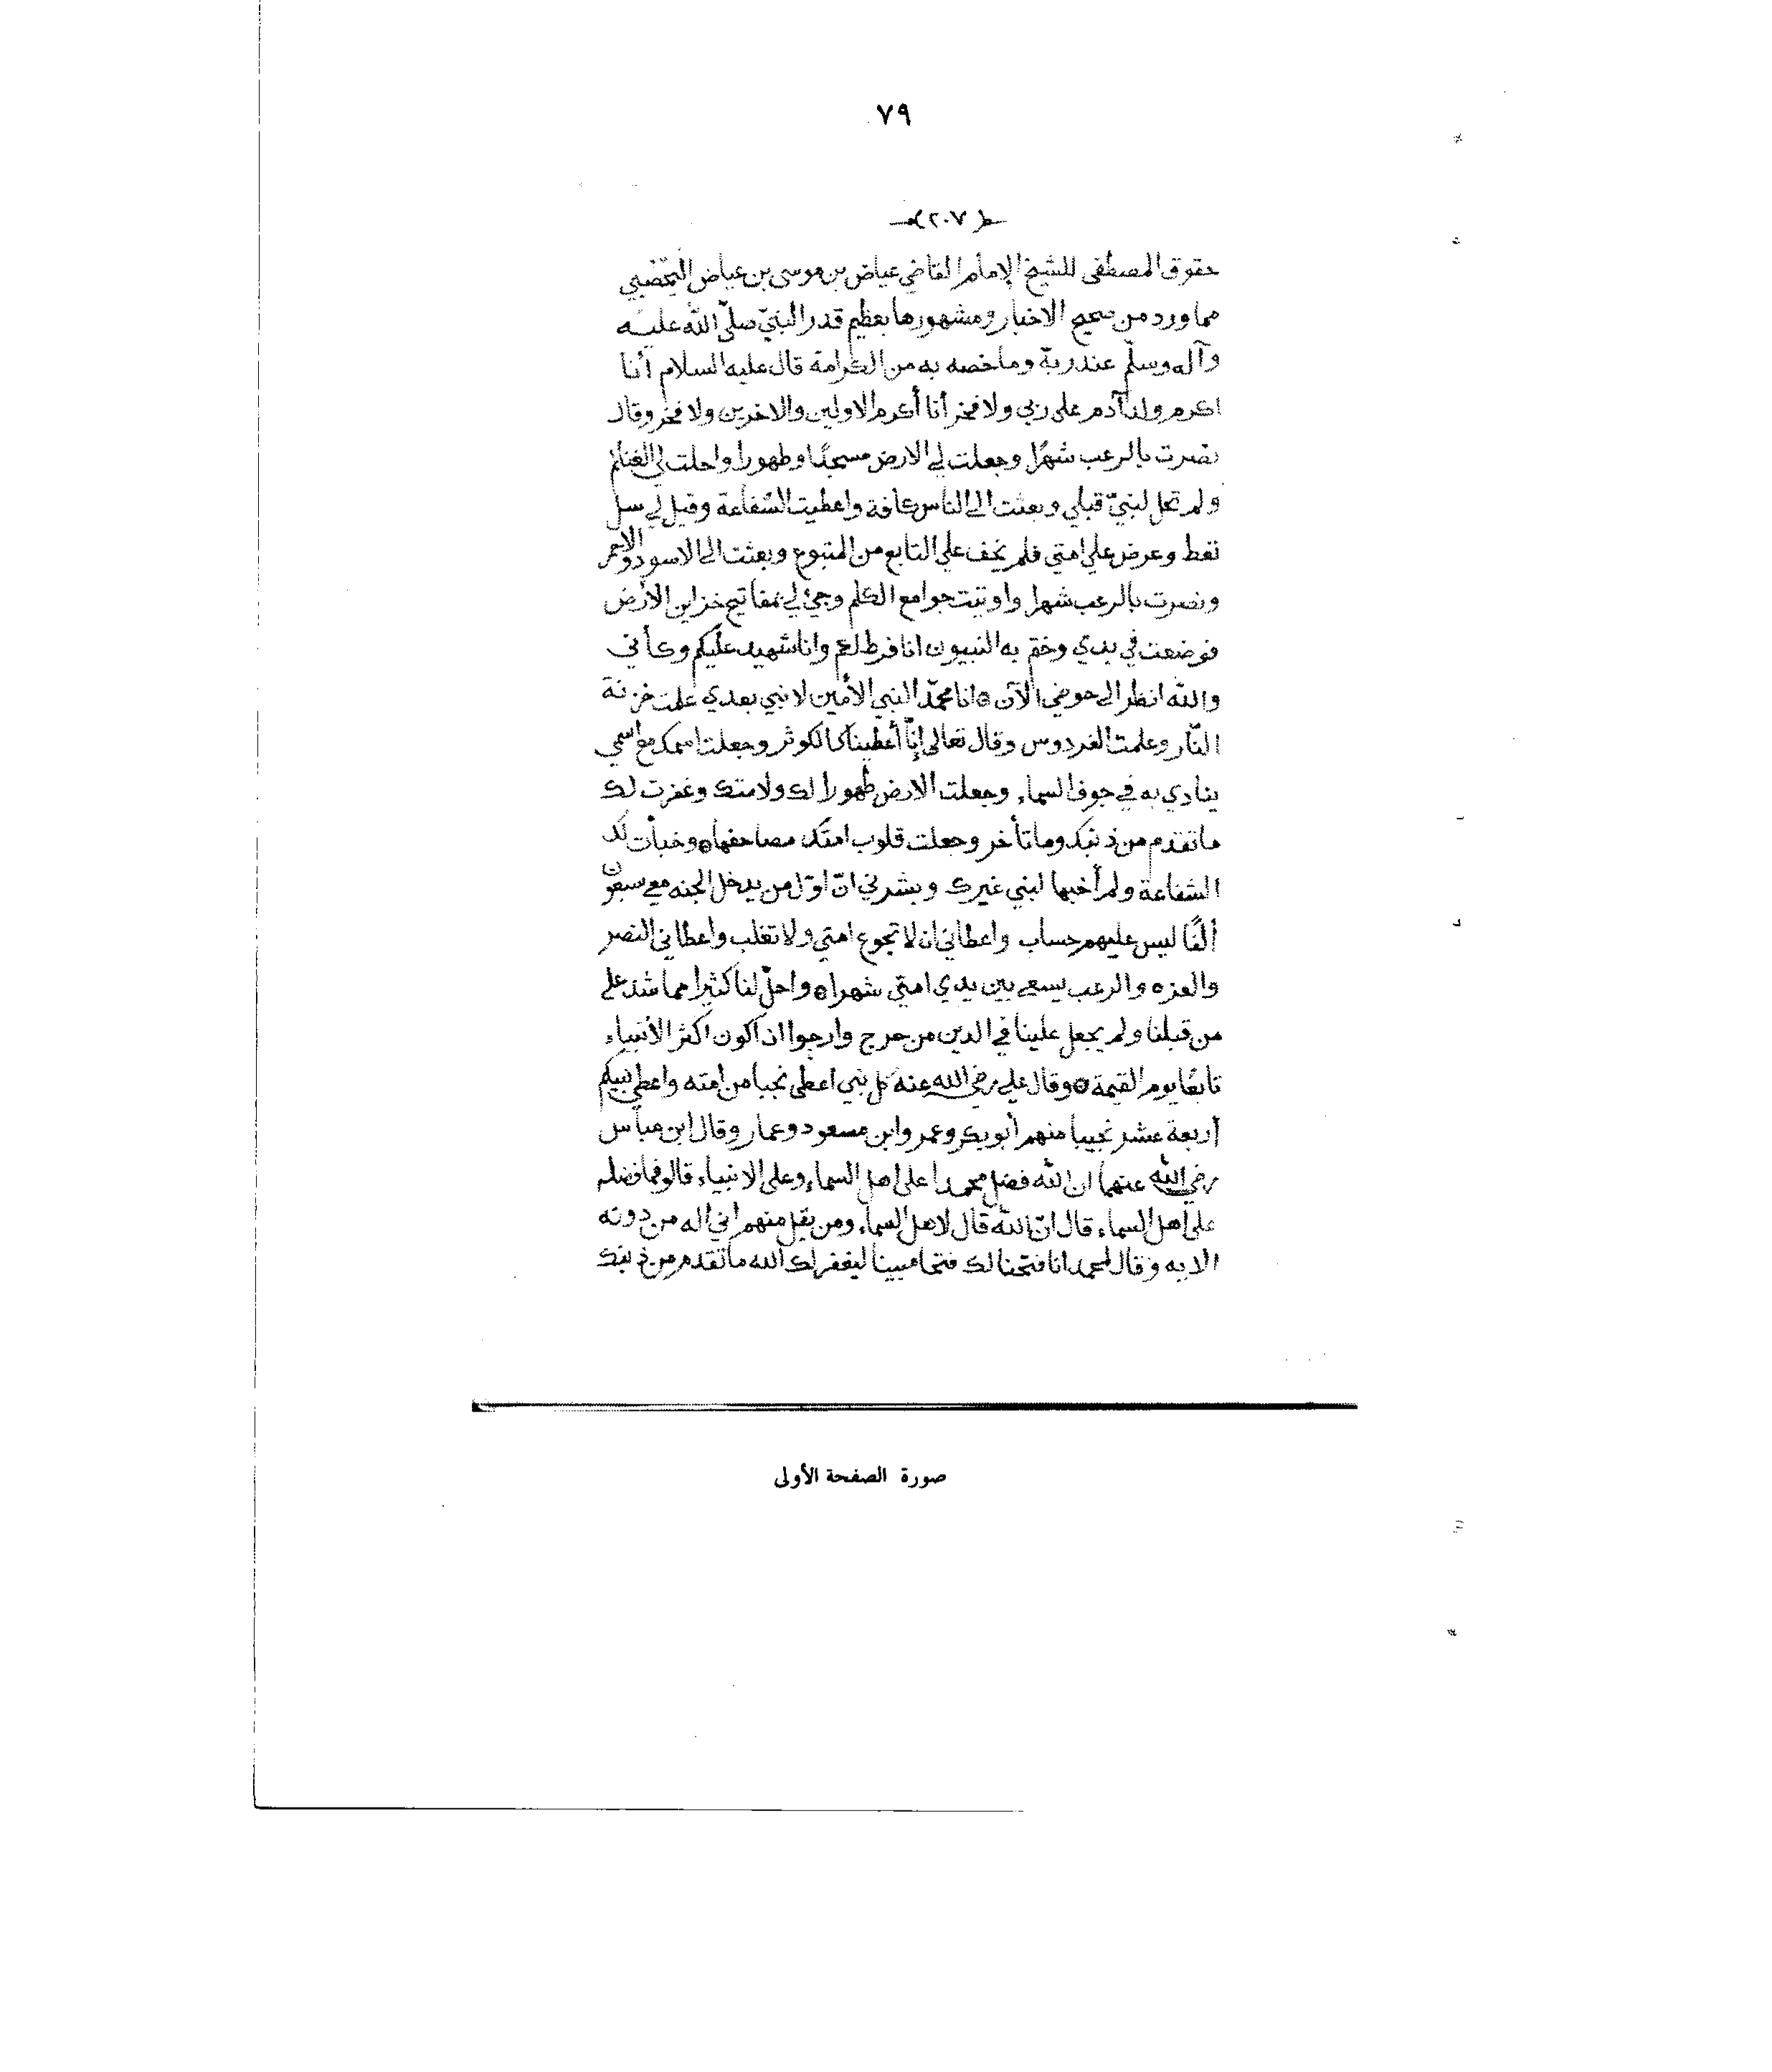 ٧٩
(٢٠٧)
حقوق المصطفى للشيخ الإمام القاضي عياض بن موسى بن عياض اليحصبي
مما ورد من صحيح الاخبار ومشهورها بعظيم قدر النبيّ صلّى الله عليه
وآله وسلّم عند ربّه وما خصه به من الكرامة قال عليه السلام أنا
اكرم ولد آدم على ربي ولا فخر أنا أكرم الاولين والاخرين ولا فخر وقال
نصرت بالرعب شهرًا وجعلت لي الارض مسجدًا وطهورا واحلت لي الغنائم
ولم تحل لنبيّ قبلي وبعثت الى الناس كافة واعطيت الشفاعة وقيل لي سل
تعط وعرض علي امتي فلم يخف علي التابع من المتبوع وبعثت الى الاسود والاحمر
ونصرت بالرعب شهرا واوتيت جوامع الكلم وجئ لي بمفاتيح خزاين الأرض
فوضعت في يدي وختم به النبيون انا فرط لكم وانا شهيد عليكم وكأني
والله انظر الى حوضي الآن ۞ انا محمّد النبي الأمين لا نبي بعدي علمت خزنة
النّار وعلمت الفردوس وقال تعالى إنّا أعطيناك الكوثر وجعلت اسمك مع اسمي
ينادي به في جوف السماء وجعلت الارض طهورا لك ولامتك وغفرت لك
ما تقدم من ذنبك وما تأخر وجعلت قلوب امتك مصاحفها ۞ وخبأت لك
الشفاعة ولم أخبها لنبي غيرك وبشرني انّ اوّل من يدخل الجنه معي سبعون
ألفًا ليس عليهم حساب واعطاني ان لا تجوع امتي ولا تغلب واعطاني النصر
والعزه والرعب يسعى بين يدي امتي شهرا ۞ واحلّ لنا كثيرا مما شدد على
من قبلنا ولم يجعل علينا في الدين من حرج وارجوا ان اكون اكثر الأنبياء
تابعًا يوم القيمة ۞ وقال علي رضي الله عنه كل نبي اعطى نجبا من امته واعطي نبيكم
أربعة عشر نجيبا منهم أبو بكر وعمر وابن مسعود وعمار وقال ابن عباس
رضي الله عنهما ان الله فضل محمدا على اهل السماء وعلى الانبياء قالو فما فضله
على اهل السماء قال انّ الله قال لاهل السماء ومن يقل منهم اني اله من دونه
الايه وقال لمحمد انا فتحنا لك فتحا مبينا ليغفر لك الله ما تقدم من ذنبك
صورة الصفحة الأولى